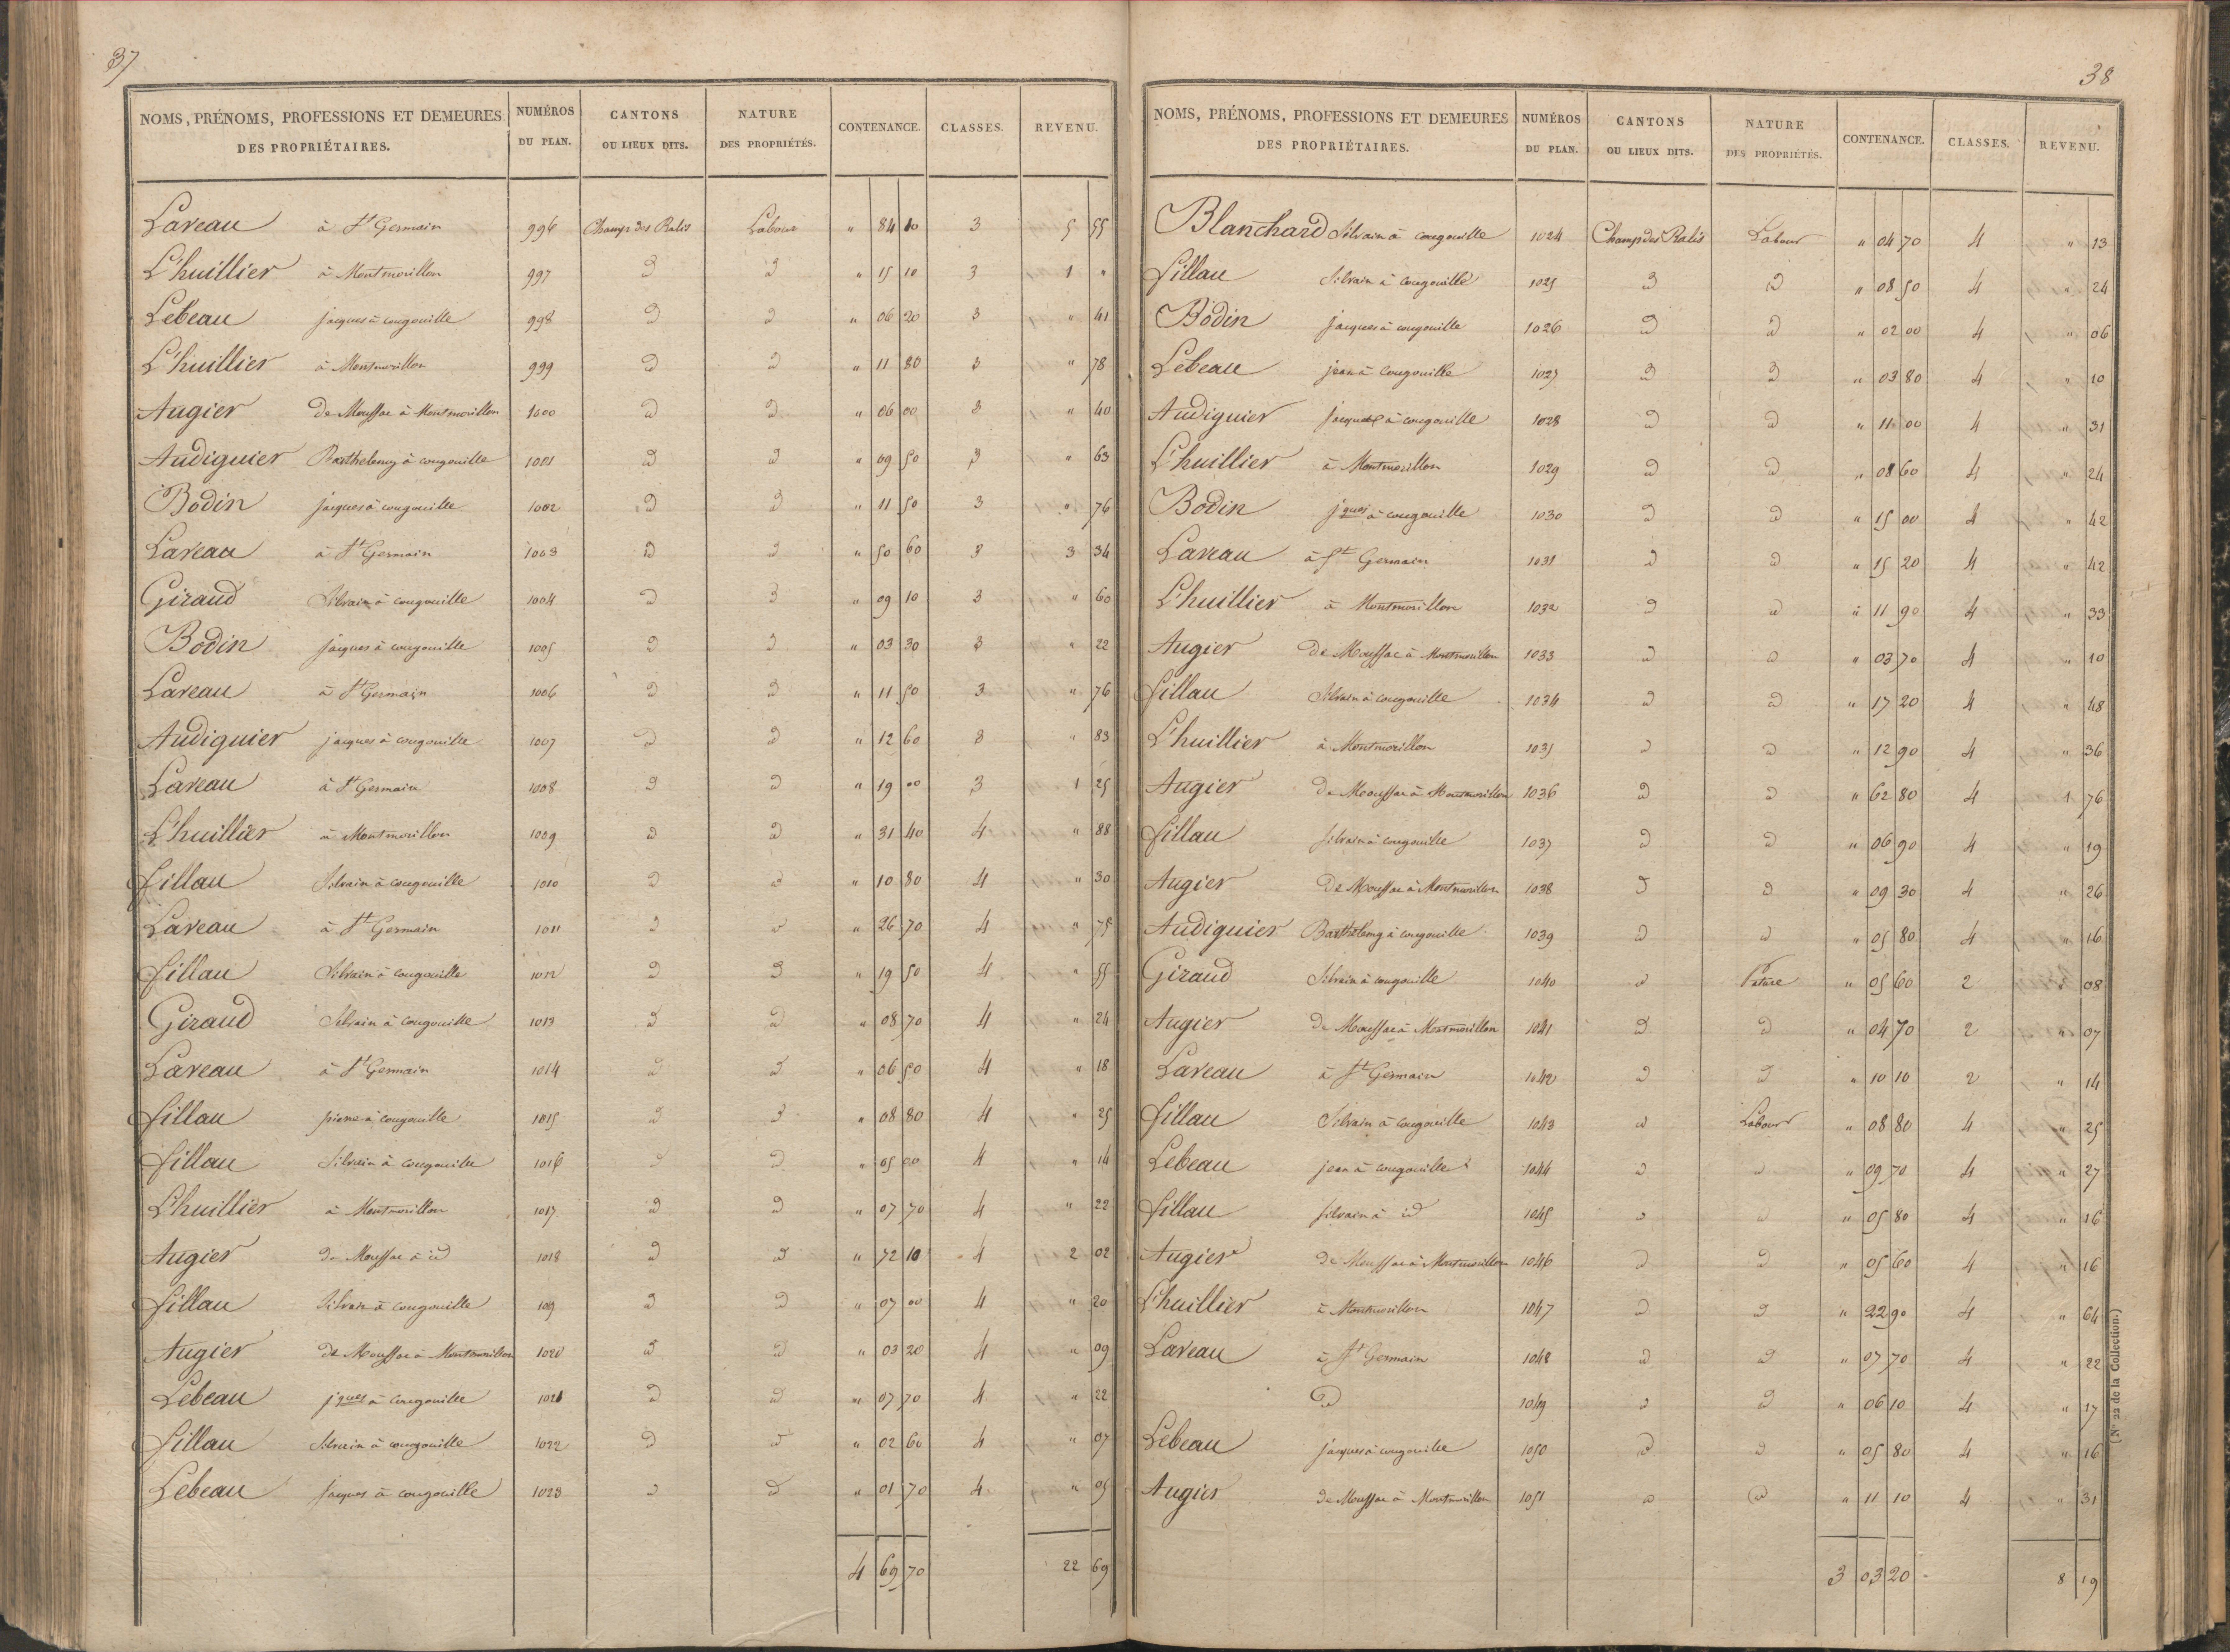 37
NOMS, PRÉNOMS, PROFESSIONS ET DEMEURES DES PROPRIÉTAIRES. NUMÉROS DU PLAN. CANTONS OU LIEUX DITS. NATURE DES PROPRIÉTÉS. CONTENANCE. CLASSES. REVENU.
Laveau à St Germain 996 Champ des Ralis Labour " 84 10 3 5 55
L'huillier à Montmorillon 997 D D " 15 10 3 1 "
Lebeau jacques à cougouille 998 D D " 06 20 3 " 41
L'huillier à Montmorillon 999 D D " 11 80 3 " 78
Augier De Moussac à Montmorillon 1000 D D " 06 00 3 " 40
Audiguier Barthelemy à cougouille 1001 D D " 09 50 3 " 63
Bodin jacques à cougouille 1002 D D " 11 50 3 " 76
Laveau à St Germain 1003 D D " 50 60 3 3 34
Giraud Silvain à cougouille 1004 D D " 09 10 3 " 60
Bodin jacques à cougouille 1005 D D " 03 30 3 " 22
Laveau à St Germain 1006 D D " 11 50 3 " 76
Audiguier jacques à cougouille 1007 D D " 12 60 3 " 83
Laveau à St Germain 1008 D D " 19 00 3 1 25
L'huillier à Montmorillon 1009 D D " 31 40 4 " 88
fillau Silvain à cougouille 1010 D D " 10 80 4 " 30
Laveau à St Germain 1011 D D " 26 70 4 " 75
fillau Silvain à cougouille 1012 D D " 19 50 4 " 55
Giraud Silvain à cougouille 1013 D D " 08 70 4 " 24
Laveau à St Germain 1014 D D " 06 50 4 " 18
fillau pierre à cougouille 1015 D D " 08 80 4 " 25
fillau Silvain à cougouille 1016 D D " 05 00 4 " 14
L'huillier à Montmorillon 1017 D D " 07 70 4 " 22
Augier De Moussac à id 1018 D D " 72 10 4 2 02
fillau Silvain à cougouille 1019 D D " 07 00 4 " 20
Augier de Moussac à Montmorillon 1020 D D " 03 20 4 " 09
Lebeau jques à cougouille 1021 D D " 07 70 4 " 22
fillau Silvain à cougouille 1022 D D " 02 60 4 " 07
Lebeau Jacques à cougouille 1023 D D " 01 70 4 " 05
4 69 70 22 69
38
NOMS, PRÉNOMS, PROFESSIONS ET DEMEURES DES PROPRIÉTAIRES. NUMÉROS DU PLAN. CANTONS OU LIEUX DITS. NATURE DES PROPRIÉTÉS. CONTENANCE. CLASSES. REVENU.
Blanchard Silvain à cougouille 1024 Champ des Ralis Labour " 04 70 4 " 13
fillau Silvain à cougouille 1025 D D " 08 50 4 " 24
Bodin jacques à cougouille 1026 D D " 02 00 4 " 06
Lebeau jean à cougouille 1027 D D " 03 80 4 " 10
Audiguier jacques à cougouille 1028 D D " 11 00 4 " 31
L'huillier à Montmorillon 1029 D D " 08 60 4 " 24
Bodin jques à cougouille 1030 D D " 15 00 4 " 42
Laveau à St Germain 1031 D D " 15 20 4 " 42
L'huillier à Montmorillon 1032 D D " 11 90 4 " 33
Augier De Moussac à Montmorillon 1033 D D " 03 70 4 " 10
fillau Silvain à cougouille 1034 D D " 17 20 4 " 48
L'huillier à Montmorillon 1035 D D " 12 90 4 " 36
Augier De Moussac à Montmorillon 1036 D D " 62 80 4 1 76
fillau Silvain à cougouille 1037 D D " 06 90 4 " 19
Augier De Moussac à Montmorillon 1038 D D " 09 30 4 " 26
Audiguier Barthelemy à cougouille 1039 D D " 05 80 4 " 16
Giraud Silvain à cougouille 1040 D Pature " 05 60 2 " 08
Augier De Moussac à Montmorillon 1041 D D " 04 70 2 " 07
Laveau à St Germain 1042 D D " 10 10 2 " 14
fillau Silvain à cougouille 1043 D Labour " 08 80 4 " 25
Lebeau jean à cougouille 1044 D D " 09 70 4 " 27
fillau Silvain à id 1045 D D " 05 80 4 " 16
Augier De Moussac à Montmorillon 1046 D D " 05 60 4 " 16
L'huillier à Montmorillon 1047 D D " 22 90 4 " 64
Laveau à St Germain 1048 D D " 07 70 4 " 22
D 1049 D D " 06 10 4 " 17
Lebeau jacques à cougouille 1050 D D " 05 80 4 " 16
Augier de Moussac à Montmorillon 1051 D D " 11 10 4 " 31
3 03 20 8 19
(N° 22 de la Collection.)